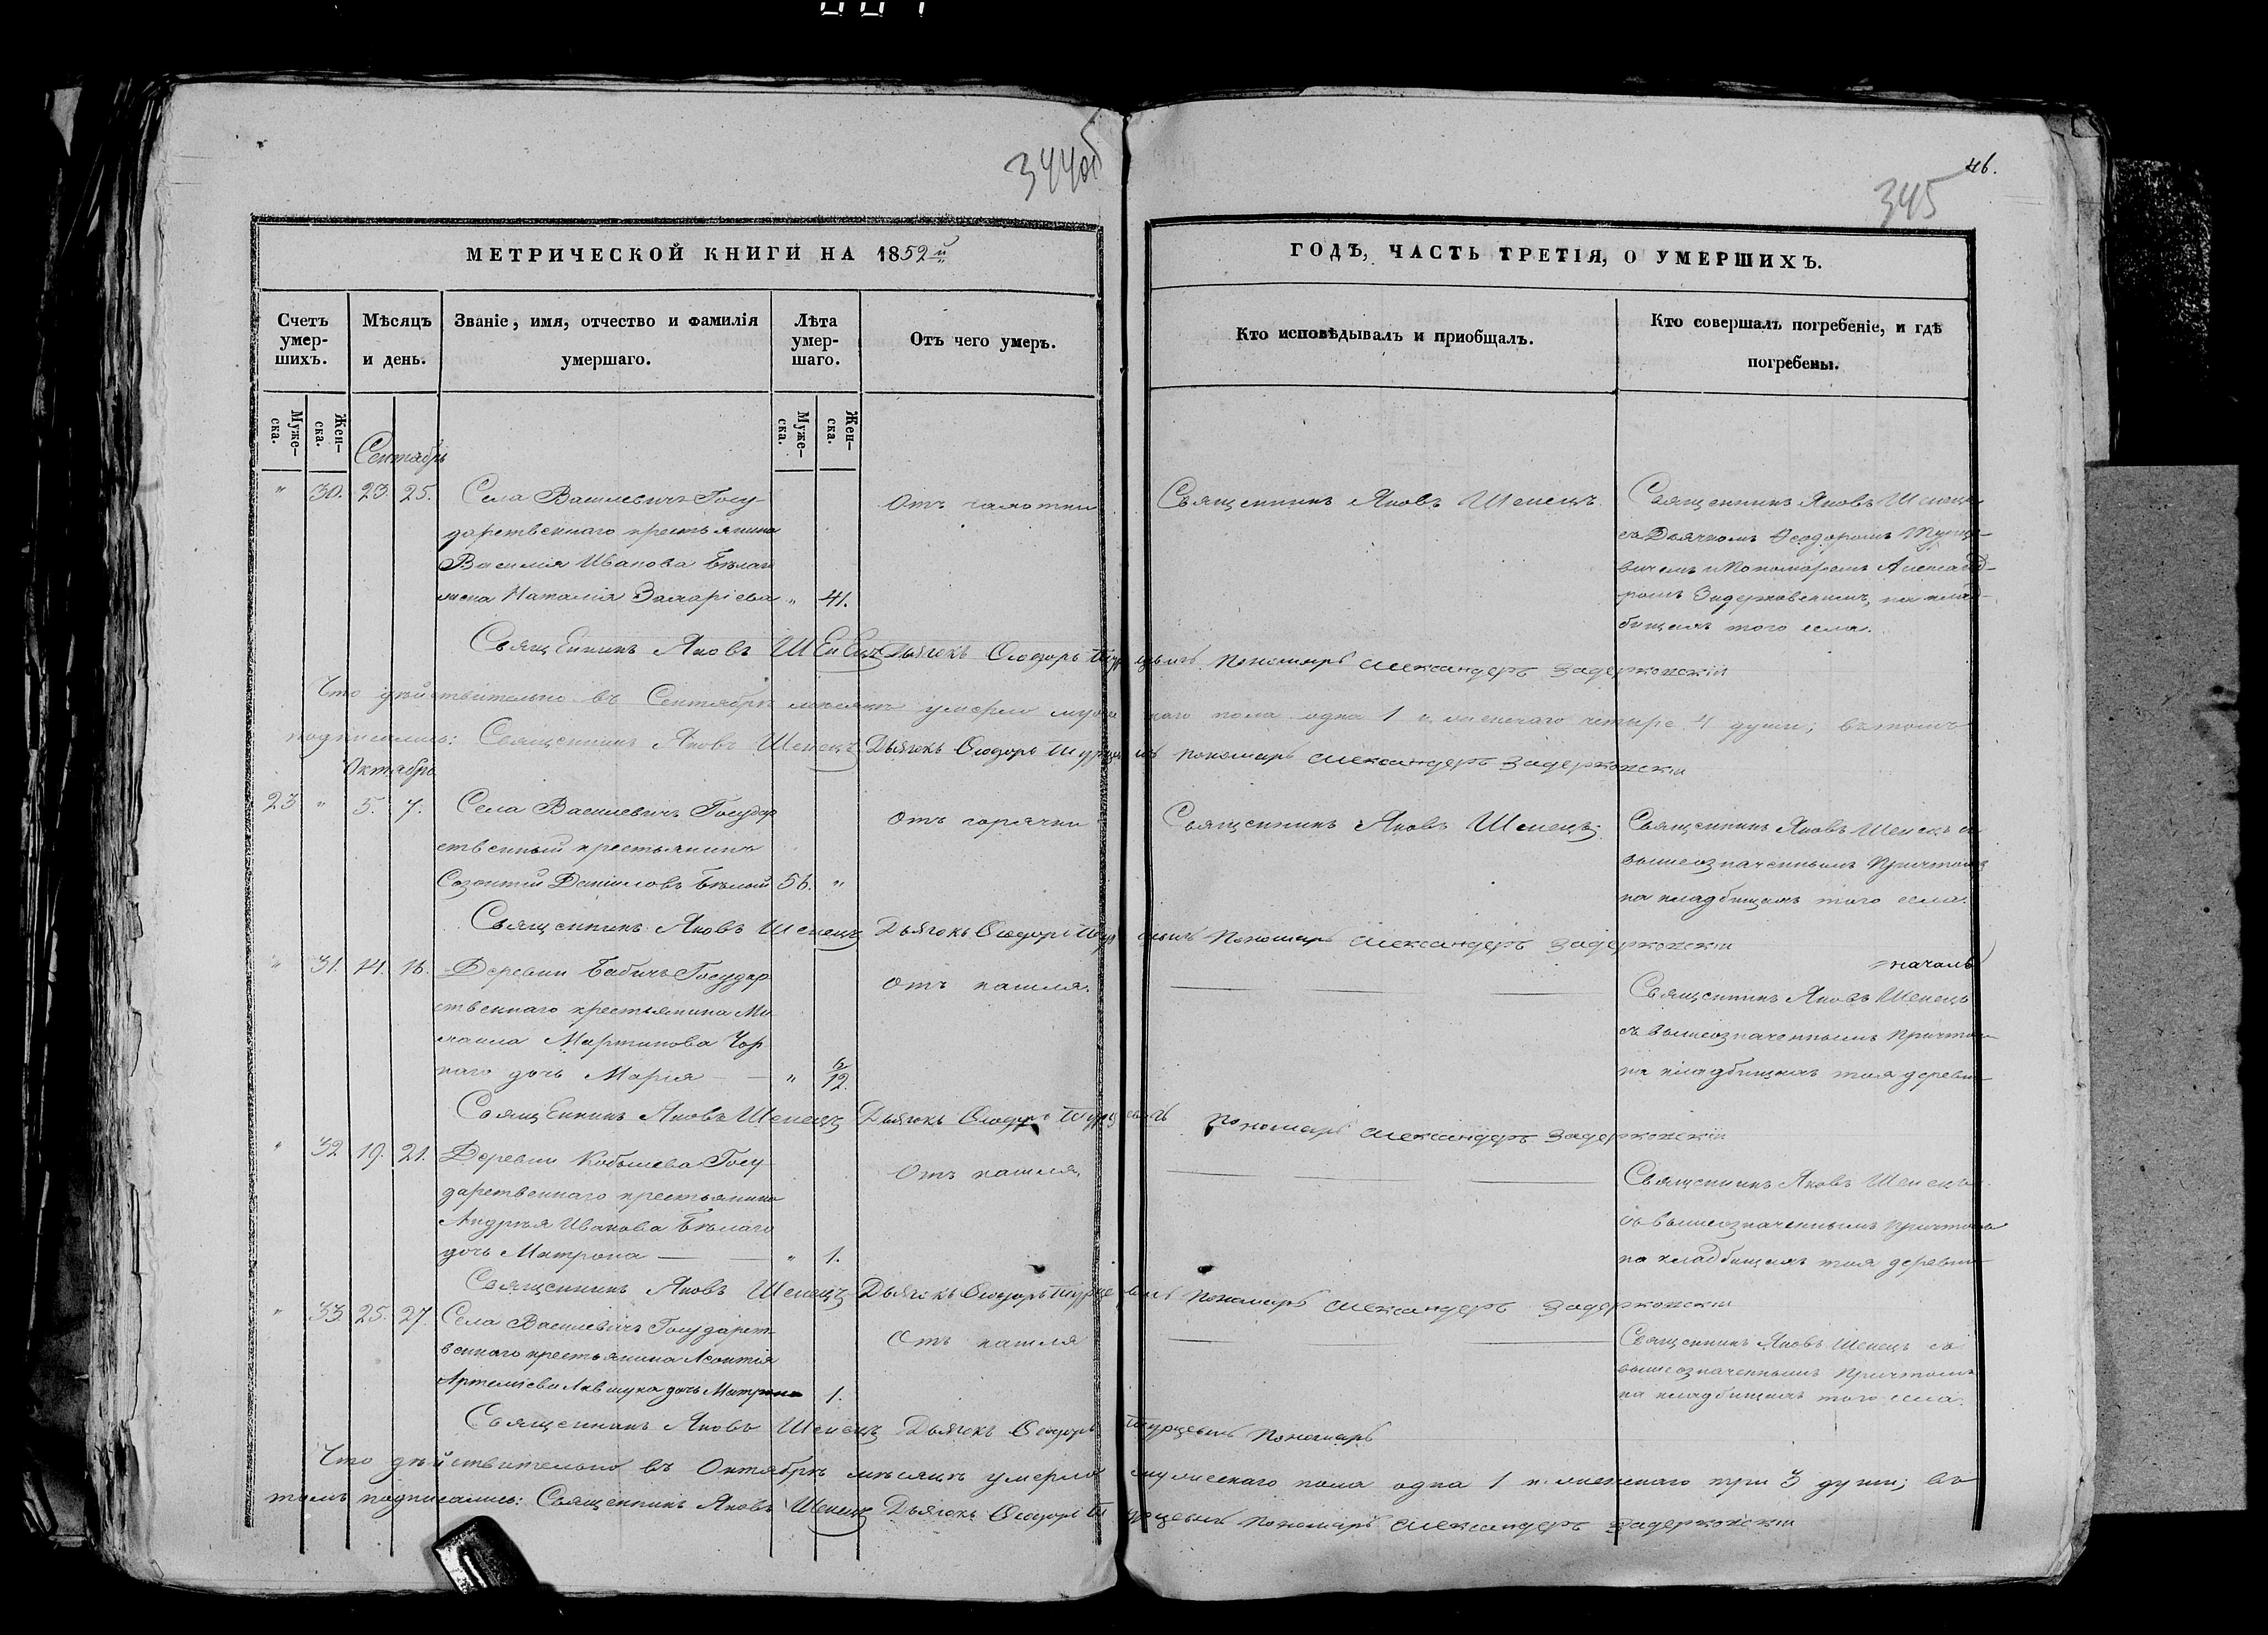 344об
46.
345
МЕТРИЧЕСКОЙ КНИГИ НА 1852й
ГОДЪ, ЧАСТЬ ТРЕТІЯ, О УМЕРШИХЪ.
Счетъ умер-шихъ.
Мѣсяцъ и день.
Званіе, имя, отчество и фамилія умершаго.
Лѣта умер-шаго.
Отъ чего умеръ.
Кто исповѣдывалъ и приобщалъ.
Кто совершалъ погребеніе, и гдѣ погребены.
Муже-ска.
Жен-ска.
Муже-ска.
Жен-ска.
Сентябрь
" 30. 23. 25.
Села Василевичъ Госу-
дарственнаго крестьянина
Василія Иванова Бѣлаго
жена Наталія Захаріева " 41.
Отъ чахотки
Священникъ Яковъ Шенецъ
Священникъ Яковъ Шенецъ
съ Дьячкомъ Ѳеодоромъ Турце-
вичемъ и Пономаремъ Александ-
ромъ Задерковскимъ, на клад-
бищахъ того села.
Священникъ Яковъ Шенецъ Дьячокъ Ѳеодоръ Турцевичъ Пономарь Александеръ Задерковскій
Что дѣйствительно въ Сентябрѣ мѣсяцѣ умерло мужескаго пола одна 1 и женскаго четыре 4 души; въ томъ
подписались: Священникъ Яковъ Шенецъ Дьячокъ Ѳеодоръ Турцевичъ Пономарь Александеръ Задерковскій
Октябрь
23 " 5. 7.
Села Василевичъ Государ
ственный крестьянинъ
Созонтій Даниловъ Бѣлый 56. "
Отъ горячки
Священникъ Яковъ Шенецъ
Священникъ Яковъ Шенецъ съ
вышеозначеннымъ Причтомъ
на кладбищахъ того села.
Священникъ Яковъ Шенецъ Дьячокъ Ѳеодоръ Турцевичъ Пономарь Александеръ Задерковскій
" 31. 14. 16.
Деревни Бабичъ Государ
ственнаго крестьянина Ми
хаила Мартинова Чор
наго дочь Марія " 6/12.
Отъ кашля.
Священникъ Яковъ Шенецъ
съ вышеозначеннымъ Причтомъ
на кладбищахъ тоя деревни
Священникъ Яковъ Шенецъ Дьячокъ Ѳеодоръ Турцевичъ Пономарь Александеръ Задерковскій
" 32 19. 21.
Деревни Кобылева Госу-
дарственнаго крестьянина
Андрея Иванова Бѣлаго
дочь Матрона " 1.
Отъ кашля,
Священникъ Яковъ Шенецъ
съ вышеозначеннымъ Причтомъ
на кладбищахъ тоя деревни
Священникъ Яковъ Шенецъ Дьячокъ Ѳеодоръ Турцевичъ Пономарь Александеръ Задерковскій
" 33 25. 27.
Села Василевичъ Государст-
веннаго крестьянина Леонтія
Артеміева дочь Матрона 1.
Отъ кашля
Священникъ Яковъ Шенецъ съ
вышеозначеннымъ Причтомъ
на кладбищахъ того села.
Священникъ Яковъ Шенецъ Дьячокъ Ѳеодоръ Турцевичъ Пономарь
Что дѣйствительно въ Октябрѣ мѣсяцѣ умерло мужескаго пола одна 1 и женскаго три 3 души; въ
томъ подписались: Священникъ Яковъ Шенецъ Дьячокъ Ѳеодоръ Турцевичъ Пономарь Александеръ Задерковскій